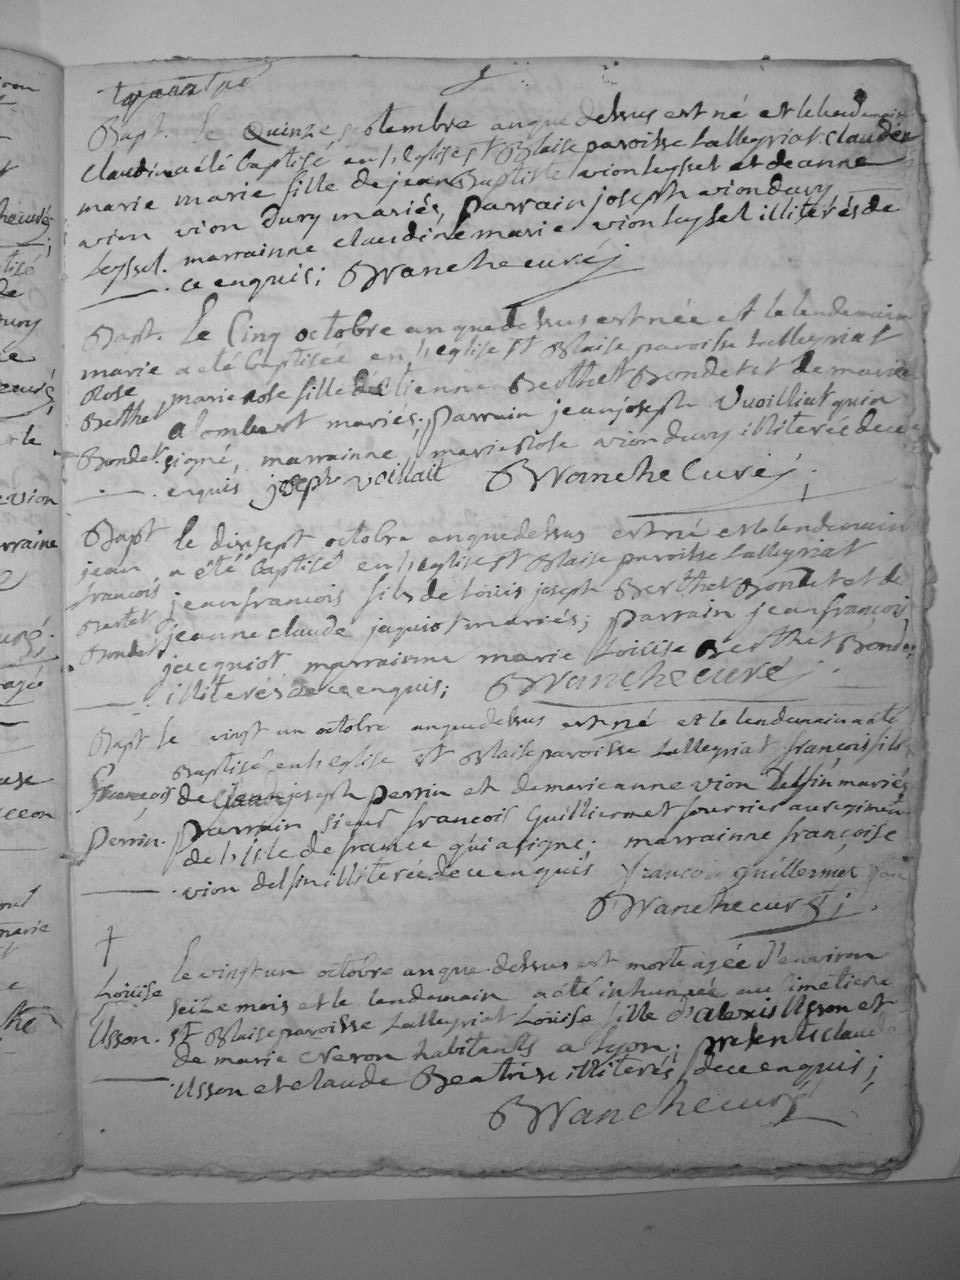 Bapt. Le Quinze septembre anquedessus est né et le lendemain
claudine a été baptisé en l'Eglise St Blaise paroisse Lalleyriat claudine
marie marie fille de jean Baptiste vion leyssel et de anne
vion vion Dury mariés, parrain joseph vion dury
Leyssel. marrainne claudine marie vion leyssel illiterés de
ce enquis; BWanche curé
Bapt. Le Cinq octobre anquedessus est née et le lendemain
marie a été baptisée en l'eglise St Blaise paroisse Lalleyriat
Rose marie rose fille d'Etienne Berthet Bondet et de marie
Berthet alombert mariés; parrain jean joseph Vuoilliat qui a
Bondet signé, marrainne, marie Rose vion dury illiterée de ce
enquis joseph voillait BWanche Curé;
Bapt le dix sept octobre anquedessus est né et le lendemain
jean a été baptisé en l'eglise St Blaise paroisse Lalleyriat
françois jean francois fils de Loüis joseph Berthet Bondet et de
Bertet jeanne claude jaquiot mariés; parrain jean françois
Bondet jacquiot marrainne marie Loüise Berthet Bondet
illiterés de ce enquis; BWanche curé
Bapt le vingt un octobre anquedessus est né et le lendemain a été
Baptisé en l'eglise St Blaise paroisse Lalleyriat françois fils
francois de joseph perrin et de marie anne vion Delfin mariés
perrin. parrain sieur françois Guilliermet fourrier au regiment
de l'isle de france qui a signé; marrainne françoise
vion delfin illiterée de ce enquis françois guillermet
BWanche curé;
Louise le vingt un octobre anquedessus est morte agée d'environ
seize mois et le lendemain a été inhumée au cimetiere
Usson. St Blaise paroisse Lalleyriat Loüise fille d'alexis Usson et
de marie Neron habitants a Lyon; presents claude
Usson et claude Beatrix illiterés de ce enquis;
BWanche curé